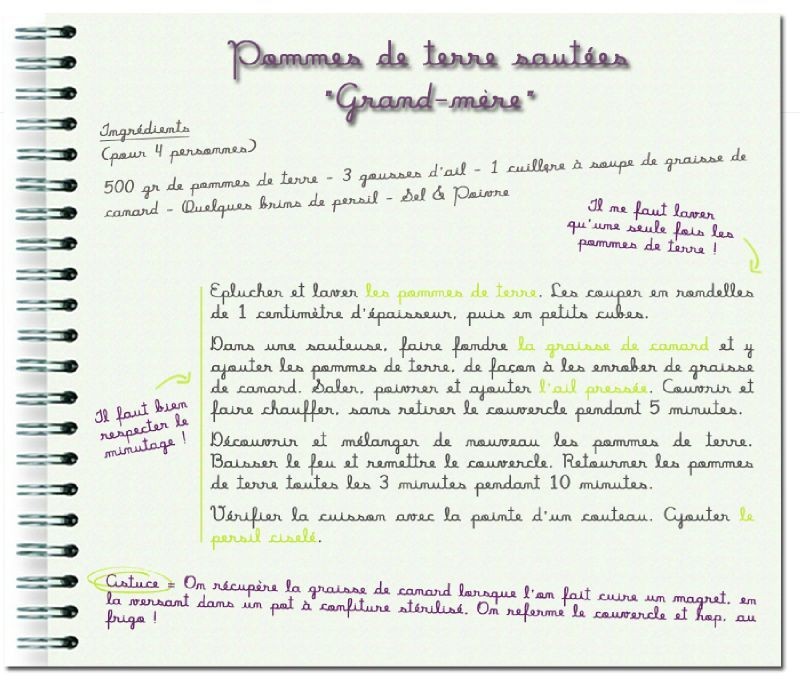 Pommes de terre sautées
"Grand-mère"
Ingrédients
(pour 4 personnes)
500 gr de pommes de terre - 3 gousses d'ail - 1 cuillère à soupe de graisse de
canard - Quelques brins de persil - Sel & Poivre
Il ne faut laver
qu'une seule fois les
pommes de terre !
Eplucher et laver les pommes de terre. Les couper en rondelles
de 1 centimètre d'épaisseur, puis en petits cubes.
Dans une sauteuse, faire fondre la graisse de canard et y
ajouter les pommes de terre, de façon à les enrober de graisse
de canard. Saler, poivrer et ajouter l'ail pressée. Couvrir et
faire chauffer, sans retirer le couvercle pendant 5 minutes.
Il faut bien
respecter le
minutage !
Découvrir et mélanger de nouveau les pommes de terre.
Baisser le feu et remettre le couvercle. Retourner les pommes
de terre toutes les 3 minutes pendant 10 minutes.
Vérifier la cuisson avec la pointe d'un couteau. Ajouter le
persil ciselé.
Astuce = On récupère la graisse de canard lorsque l'on fait cuire un magret, en
la versant dans un pot à confiture stérilisé. On referme le couvercle et hop, au
frigo !